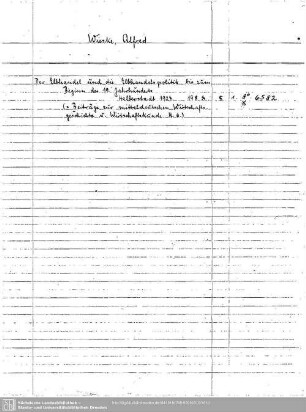 Wieske, Alfred
Der Elbhandel und die Elbhandelspolitik bis zum
Beginn des 19. Jahrhunderts
Halberstadt 1927. 178 S. 8. 1. 8° 6582
(= Beiträge zur mitteldeutschen Wirtschafts-
geschichte u. Wirtschaftskunde H. 6.)
Sächsische Landesbibliothek -
Staats- und Universitätsbibliothek Dresden